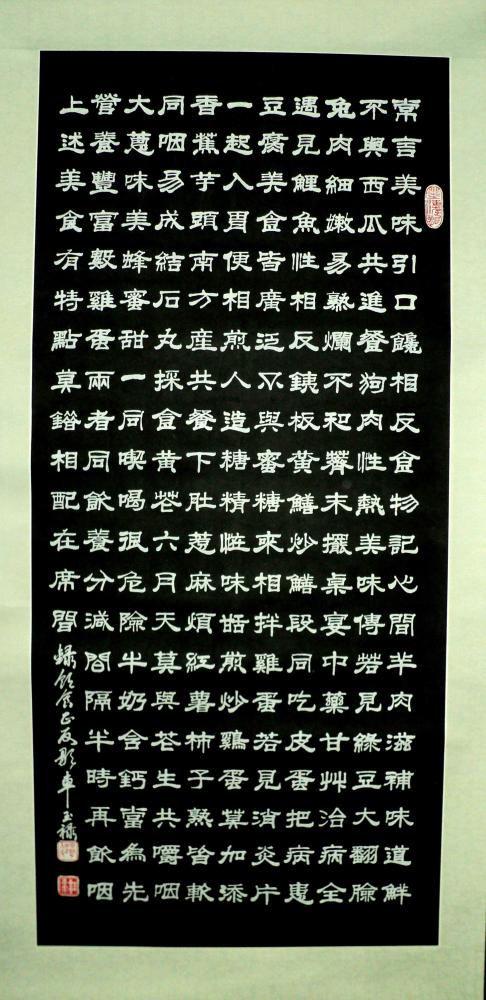 常吉美味引口饞相反食物記心間羊肉滋補味道鮮
不與西瓜共進餐狗肉性熱美味傳若見綠豆大翻臉
兔肉細嫩易熟爛不和薺末擺桌宴中藥甘艸治病全
遇見鯉魚性相反銕板黄鱔炒鱔段同吃皮蛋把病患
豆腐美食皆廣泛不與蜜糖來相拌雞蛋若見消炎片
一起入胃便相煎人造糖精恠味甛煎炒鷄蛋莫加添
香蕉芋頭南方産共餐下肚惹麻煩紅薯柿子熟皆軟
同咽易成結石丸採食黄芲六月天莫與芲生共嚼咽
大蔥味美蜂蜜甜一同喫喝很危險牛奶含鈣富為先
營養豐富數雞蛋兩者同飲養分減間隔半時再飲咽
上述美食有特點莫錯相配在席間錄飲食正反歌車玉